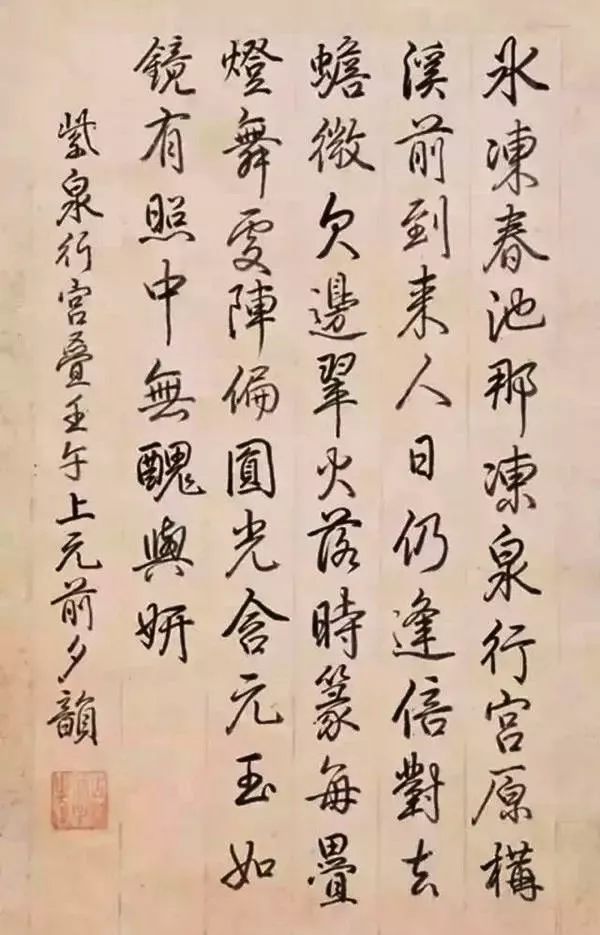 氷凍春池那凍泉行宮原構
溪前到来人日仍逢倍對去
蟾微欠邊翠火落時篆每疊
燈舞陣偏圓光含元玉如
鏡有照中無醜與妍
紫泉行宮叠壬午上元前夕韻